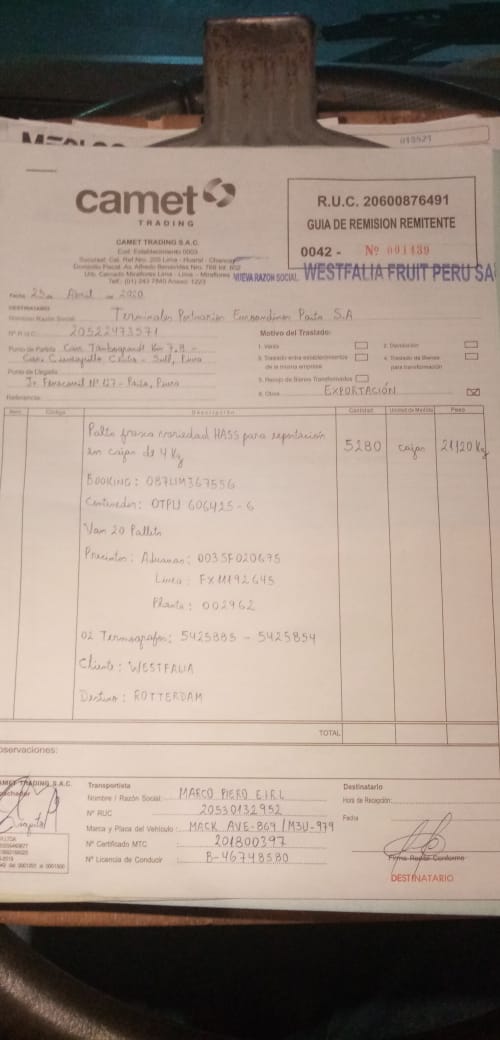 018521
camet
TRADING
CAMET TRADING S.A.C.
Cod. Establecimiento 0003
Sucursal: Cal. Ref. Nro. 205 Lima - Huaral - Chancay
Domicilio Fiscal: Av. Alfredo Benavides Nro. 768 Int. 602
Urb. Cercado Miraflores Lima - Lima - Miraflores
Telf.: (01) 243 7840 Anexo: 1223
R.U.C. 20600876491
GUIA DE REMISION REMITENTE
0042 - Nº 001439
NUEVA RAZON SOCIAL WESTFALIA FRUIT PERU SA
Fecha: 25 de Abril de 2020
DESTINATARIO
Nombre/Razón Social: Terminales Portuarios Euroandinos Paita S.A
Nº R.U.C.: 20522473571
Punto de Partida: Carr. Tambogrande Km 7.8 -
Caserio Cieneguillo Centro - Sull, Piura
Punto de Llegada:
Jr. Ferrocarril Nº 127 - Paita, Piura
Referencia:
Motivo del Traslado:
1. Venta
2. Devolución
3. Traslado entre establecimientos de la misma empresa
4. Traslado de Bienes para transformación
5. Recojo de Bienes Transformados
6. Otros EXPORTACIÓN
Item Código Descripción Cantidad Unidad de Medida Peso
Palta fresca variedad HASS para exportacion 5280 cajas 21120 Kg
en cajas de 4 Kg
BOOKING: 087LIM367556
Contenedor: OTPU 606425-6
Van 20 Pallets
Precintos: Aduanas: 0035F020675
Linea: FX11192645
Planta: 002962
02 Termografos: 5425885 - 5425854
Cliente: WESTFALIA
Destino: ROTTERDAM
TOTAL
Observaciones:
CAMET TRADING S.A.C.
Transportista
Nombre / Razón Social: MARCO PIERO E.I.R.L
Nº RUC 20530132952
Marca y Placa del Vehículo: MACK AVE-869 / M3U-979
Nº Certificado MTC 201800397
Nº Licencia de Conducir B-46748580
Destinatario
Hora de Recepción:
Fecha
Firma Recibí Conforme
DESTINATARIO